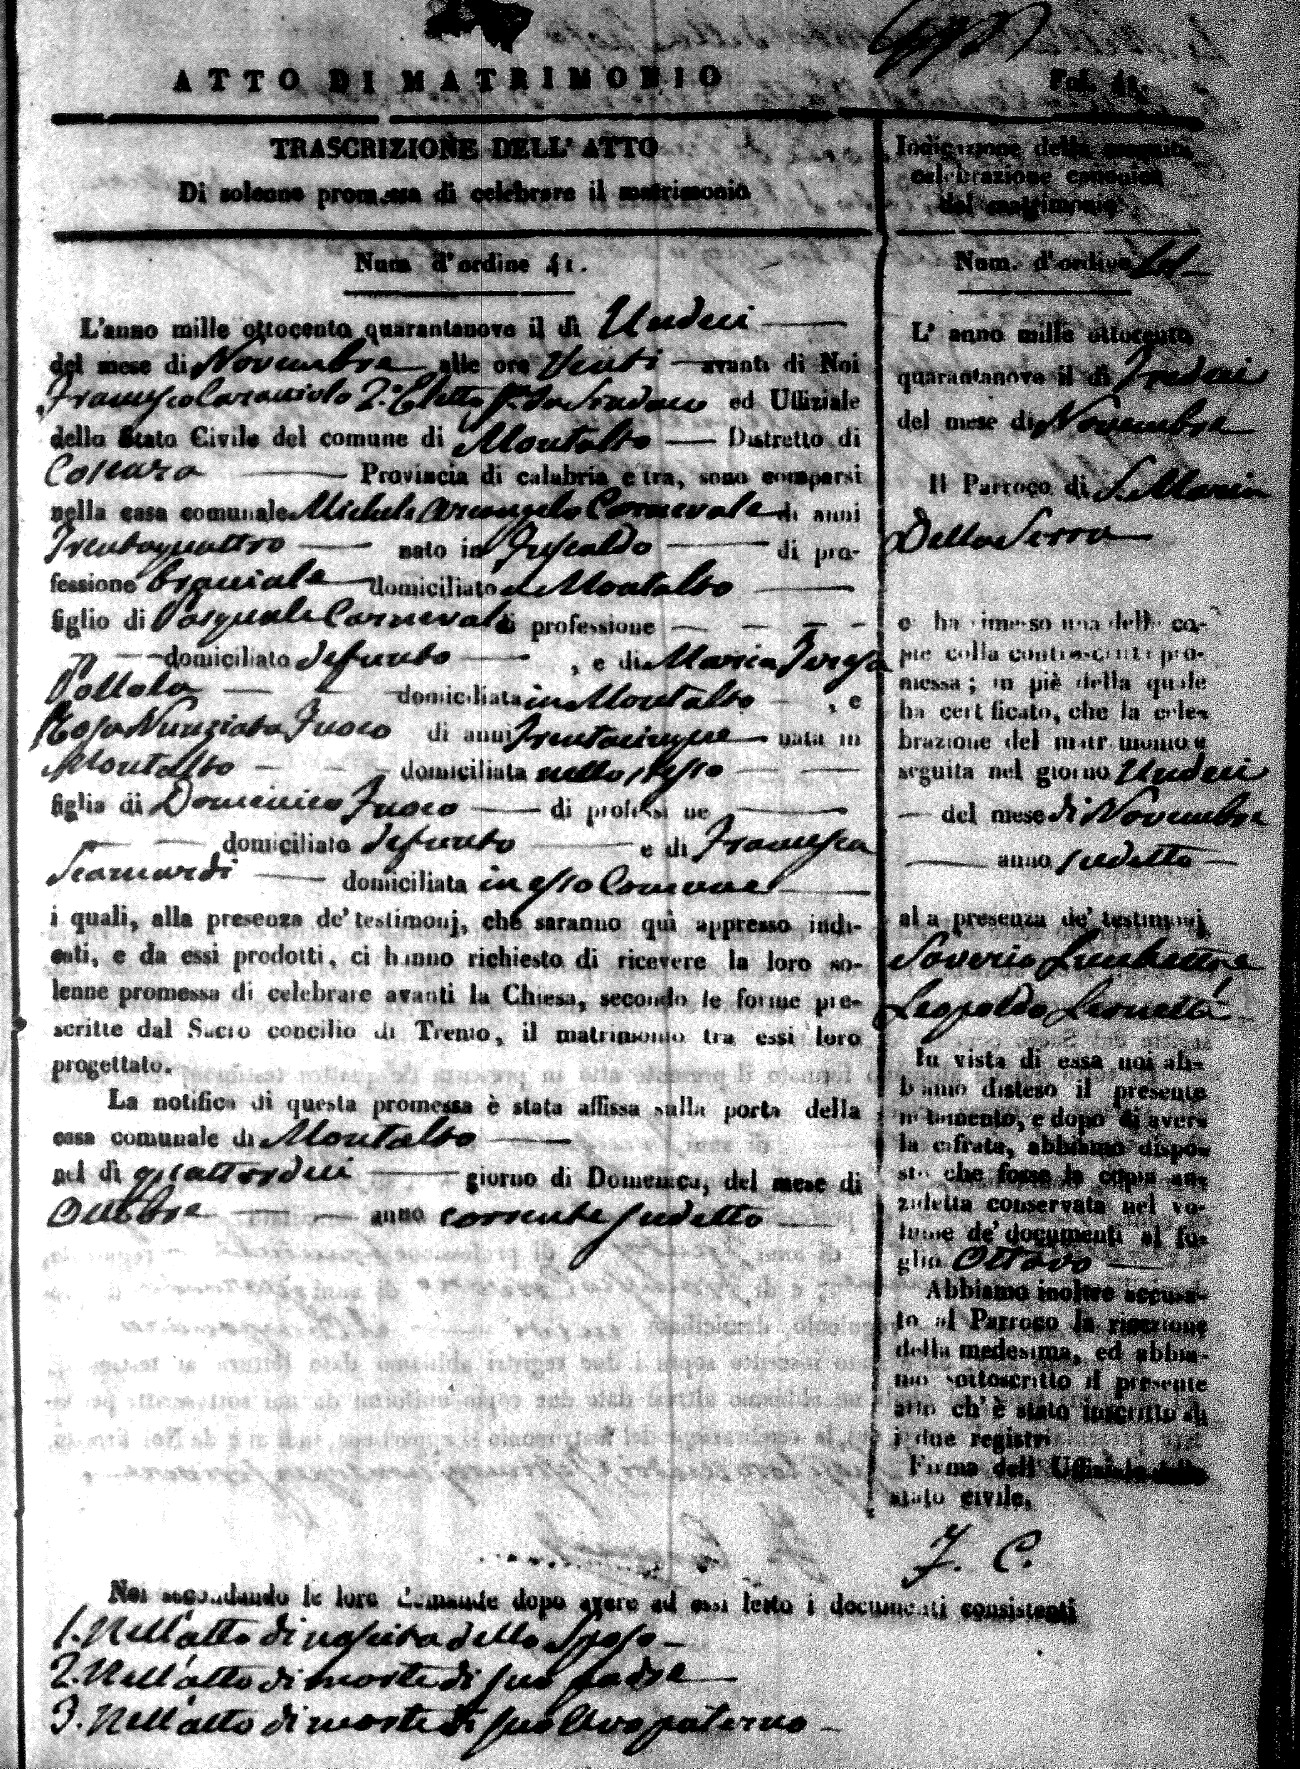 ATTO DI MATRIMONIO
Fol. 41.
TRASCRIZIONE DELL' ATTO
Di solenne promessa di celebrare il matrimonio
Num d'ordine 41.
L'anno mille ottocento quarantanove il dì Undeci
del mese di Novembre alle ore Venti avanti di Noi
Francesco Caracciolo 2.° Eletto Sindaco ed Uffiziale
dello Stato Civile del comune di Montalto Distretto di
Cosenza Provincia di calabria citra, sono comparsi
nella casa comunale Michele Arcangelo Carnevale di anni
Trentaquattro nato in Fuscaldo di pro-
fessione braciale domiciliato in Montalto
figlio di Pasquale Carnevale di professione
domiciliato defunto , e di Maria Teresa
domiciliata in Montalto , e
Rosa Nunziata Fuoco di anni Trentacinque nata in
Montalto domiciliata nello stesso
figlia di Domenico Fuoco di professi ne
domiciliato defunto e di Francesca
Scarnardi domiciliata in esso Comune
i quali, alla presenza de' testimonj, che saranno quì appresso indi-
cati, e da essi prodotti, ci hanno richiesto di ricevere la loro so-
lenne promessa di celebrare avanti la Chiesa, secondo le forme pre-
scritte dal Sacro concilio di Trento, il matrimonio tra essi loro
progettato.
La notifica di questa promessa è stata affissa sulla porta della
casa comunale di Montalto
nel dì quattordeci giorno di Domenica, del mese di
Ottobre anno corrente sudetto
Indicazione della seguita
celebrazione canonica
del matrimonio
Num. d'ordine 41
L' anno mille ottocento
quarantanove il dì Tredeci
del mese di Novembre
Il Parroco di S. Maria
Della Serra
ci ha rimesso una delle co-
pie colla controscritta pro-
messa; in piè della quale
ha certificato, che la cele-
brazione del matrimonio è
seguita nel giorno Undeci
del mese di Novembre
anno sudetto
alla presenza de' testimonj
Saverio
Leopoldo Leonetti
In vista di essa noi ab-
biamo disteso il presente
notamento, e dopo di aver-
la cifrata, abbiamo dispo-
sto che fosse la copia an-
zidetta conservata nel vo-
lume de' documenti al fo-
glio Ottavo
Abbiamo inoltre accusa-
to al Parroco la ricezione
della medesima, ed abbia-
mo sottoscritto il presente
atto ch' è stato inscritto su
i due registri
Firma dell' Uffiziale dello
stato civile.
F. C.
Noi secondando le loro domande dopo avere ad essi letto i documenti consistenti
1. Nell'atto di nascita dello Sposo
2. Nell'atto di morte di suo padre
3. Nell'atto di morte di suo Avo paterno